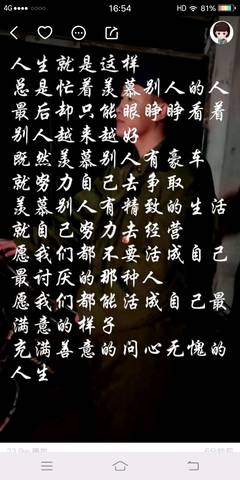 4G
16:54
HD
81%
人生就是这样
总是忙着羡慕别人的人
最后却只能眼睁睁看着
别人越来越好
既然羡慕别人有豪车
就努力自己去争取
羡慕别人有精致的生活
就自己努力去经营
愿我们都不要活成自己
最讨厌的那种人
愿我们都能活成自己最
满意的样子
充满善意的问心无愧的
人生